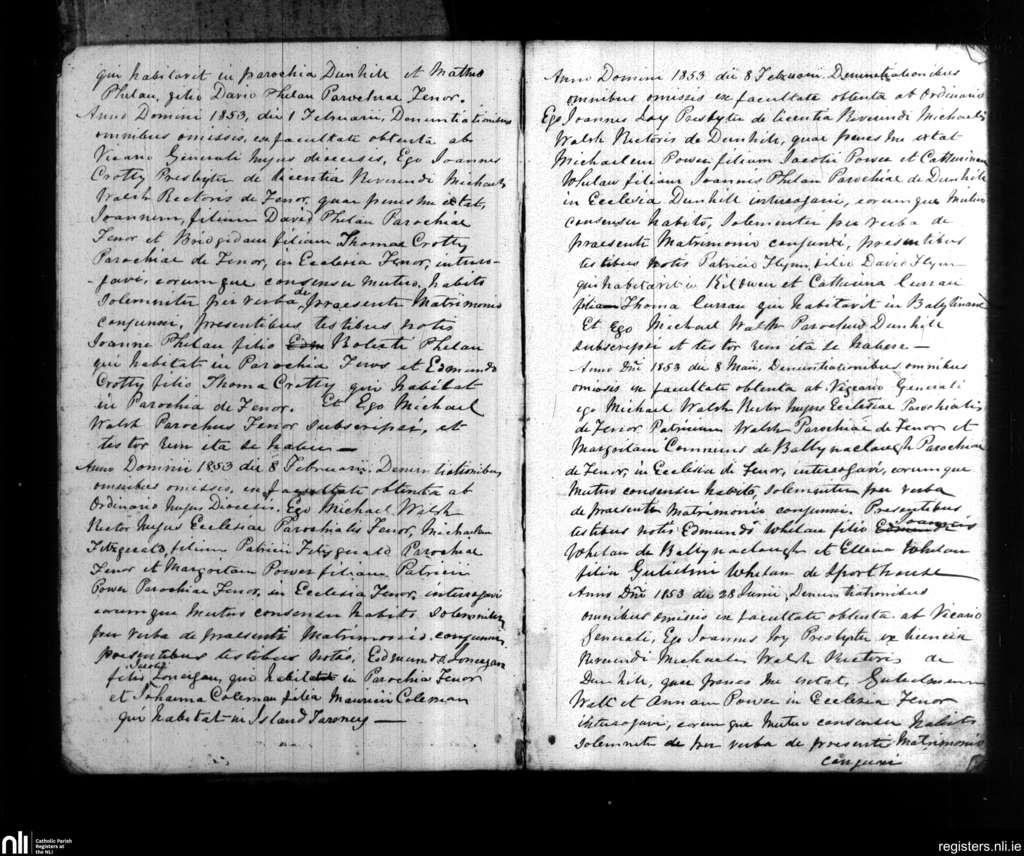 qui habitavit in parochia Dunhill et Mattheo
Phelan, filio David Phelan Parochiae Fenor.
Anno Domini 1853, die 1 Februarii, Denuntiationibus
omnibus omissis, ex facultate obtenta ab
Vicario Generali hujus diocesis, Ego Joannes
Crotty Presbyter de licentia Reverendi Michaelis
Walsh Rectoris de Fenor, quae penes me extat,
Joannem, filium David Phelan Parochiae
Fenor et Bridgidam filiam Thomae Crotty
Parochiae de Fenor, in Ecclesia Fenor, interro-
-gavi, eorumque consensu mutuo, habito
solemniter per verba de praesenti Matrimonio
conjunxi, presentibus testibus notis
Joanne Phelan filio Edm Phelan
qui habitat in Parochia et Edmundo
Crotty filio Thoma Crotty qui habitat
in Parochia de Fenor. Et Ego Michael
Walsh Parochus Fenor subscripsi, et
testor rem ita se habere —
Anno Domini 1853 die 8 Februarii, Denuntiationibus
omnibus omissis, ex facultate obtenta ab
Ordinario hujus Diocesis. Ego Michael Walsh
Rector hujus Ecclesiae Parochialis Fenor, Michaelem
Fitzgerald, filium Patricii Fitzgerald Parochiae
Fenor et Margaritam Power filiam Patricii
Power Parochiae Fenor, in Ecclesia Fenor, interrogavi
eorumque mutuo consensu habito solemniter
per verba de praesenti Matrimonio conjunxi,
praesentibus testibus notis, Edmundo Lonergan
filio Jacobi Lonergan, qui habitat in Parochia Fenor
et Johanna Coleman filia Mauricii Coleman
qui habitat in Island Tarsney —
Anno Domini 1853 die 8 Februarii. Denuntiationibus
omnibus omissis ex facultate obtenta ab Ordinario
Ego Joannes Joy Presbyter de licentia Reverendi Michaelis
Walsh Rectoris de Dunhill, quae penes me extat
Michaelem Power filium Jacobi Power et Catherinam
Whelan filiam Joannis Phelan Parochiae de Dunhill
in Ecclesia Dunhill interrogavi, eorumque mutuo
consensu habito, solemniter per verba de
praesenti Matrimonio conjunxi, praesentibus
testibus notis Patricio Flynn, filio David Flynn
qui habitavit in et Catherina Curran
filia Thoma Curran qui habitavit in
Et Ego Michael Walsh Parochus Dunhill
subscripsi et testor rem ita se habere —
Anno Dni 1853 die 8 Maii, Denuntiationibus omnibus
omissis ex facultate obtenta ab Vicario Generali
ego Michael Walsh Rector hujus Ecclesiae Parochialis
de Fenor Patricium Walsh Parochiae de Fenor et
Margaritam de Ballynaclough Parochiae
de Fenor, in Ecclesia de Fenor, interrogavi, eorumque
mutuo consensu habito, solemniter per verba
de praesenti Matrimonio conjunxi. Presentibus
testibus notis Edmundo Whelan filio Edmundi Joannis
Whelan de Ballynaclough et Ellena Whelan
filia Gulielmi Whelan de Sporthouse
Anno Dni 1853 die 28 Junii, Denuntiationibus
omnibus omissis ex facultate obtenta ab Vicario
Generale, Ego Joannes Joy Presbyter ex licencia
Reverendi Michaelis Walsh Rectoris de
Dunhill, quae penes me extat, Gulielmum
Wall et Annam Power in Ecclesia Fenor
interrogavi, eorumque mutuo consensu habito
solemniter de per verba de praesenti Matrimonio
conjunxi
nli Catholic Parish
Registers at
the NLI
registers.nli.ie